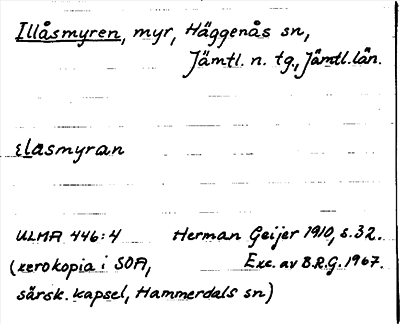 Illåsmyren, myr, Häggenås sn,
Jämtl. n. tg., Jämtl. län.
ɛlasmyran
ULMA 446:4 Herman Geijer 1910, s. 32.
(xerokopia i SOA, Exc. av B.R.G. 1967.
särsk. kapsel, Hammerdals sn)